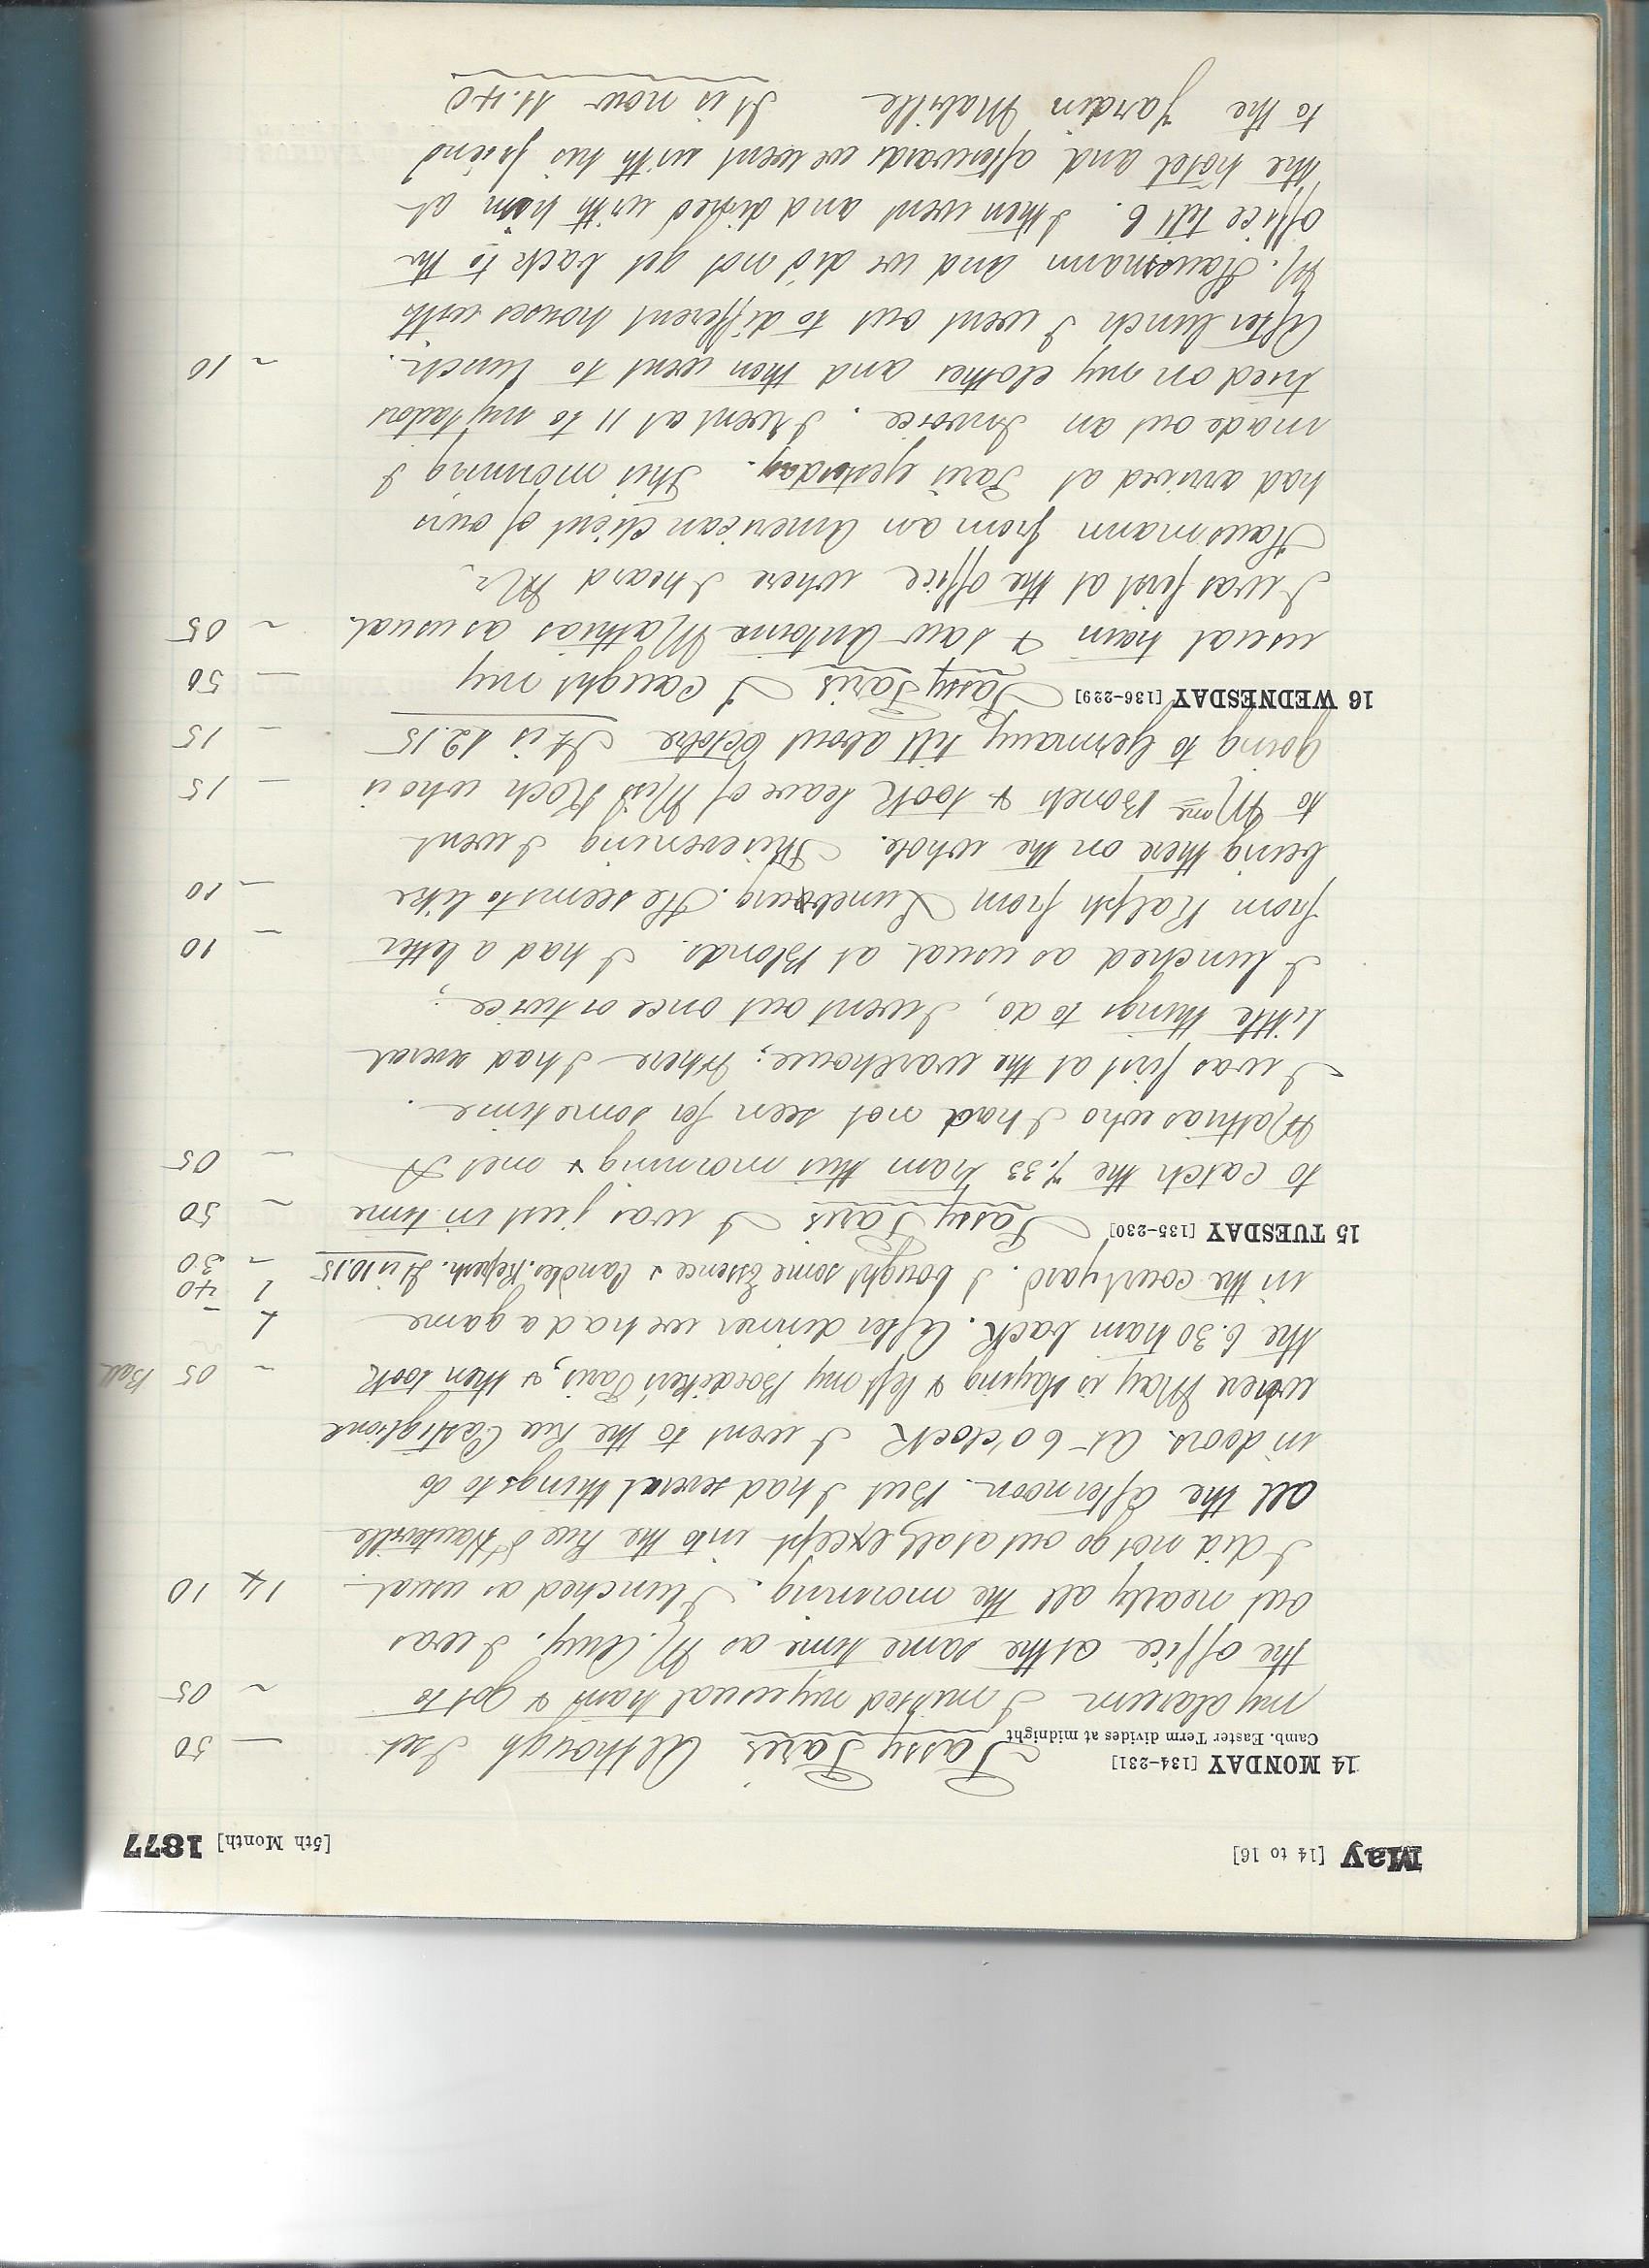 May [14 to 16] [5th Month] 1877
14 MONDAY [134-231] Passy Paris Although I set — 50
Camb. Easter Term divides at midnight
my alarum I missed my usual train & got to ~ 05
the office at the same time as M. Guy. I was
out nearly all the morning. I lunched as usual. 14 10
I did not go out at all, except into the Rue d'Hauteville
all the afternoon. But I had several things to do
in doors. At 6 o'clock I went to the Rue Castiglione
where May is staying & left my Baedeker's Paris, & then took ~ 05 Ball
the 6.30 train back. After dinner we had a game
in the courtyard. I bought some Essence & Candles. It is 10.15 1 40
~ 30
15 TUESDAY [135-230] Passy Paris I was just in time ~ 50
to catch the 7.33 train this morning & met A ~ 05
Mathias who I had not seen for sometime.
I was first at the warehouse; where I had several
little things to do, I went out once or twice;
I lunched as usual at Blonds. I had a letter — 10
from Ralph from Luneburg. He seems to like — 10
being there on the whole. This evening I went
to Mme & took leave of Miss Koch who is — 15
going to Germany till about Octobre It is 12.15 — 15
16 WEDNESDAY [136-229] Passy Paris I caught my — 50
usual train & saw Antoine Mathias as usual. ~ 05
I was first at the office where I heard Mr.
Hausmann from an American client of ours
had arrived at Paris yesterday. This morning I
made out an Invoice. I went at 11 to my tailors
tried on my clothes and then went to lunch. ~ 10
After lunch I went out to different houses with
M. Hausmann and we did not get back to the
office till 6. I then went and dined with him at
the hotel and afterwards we went with his friend
to the Jardin Mabille It is now 11.40